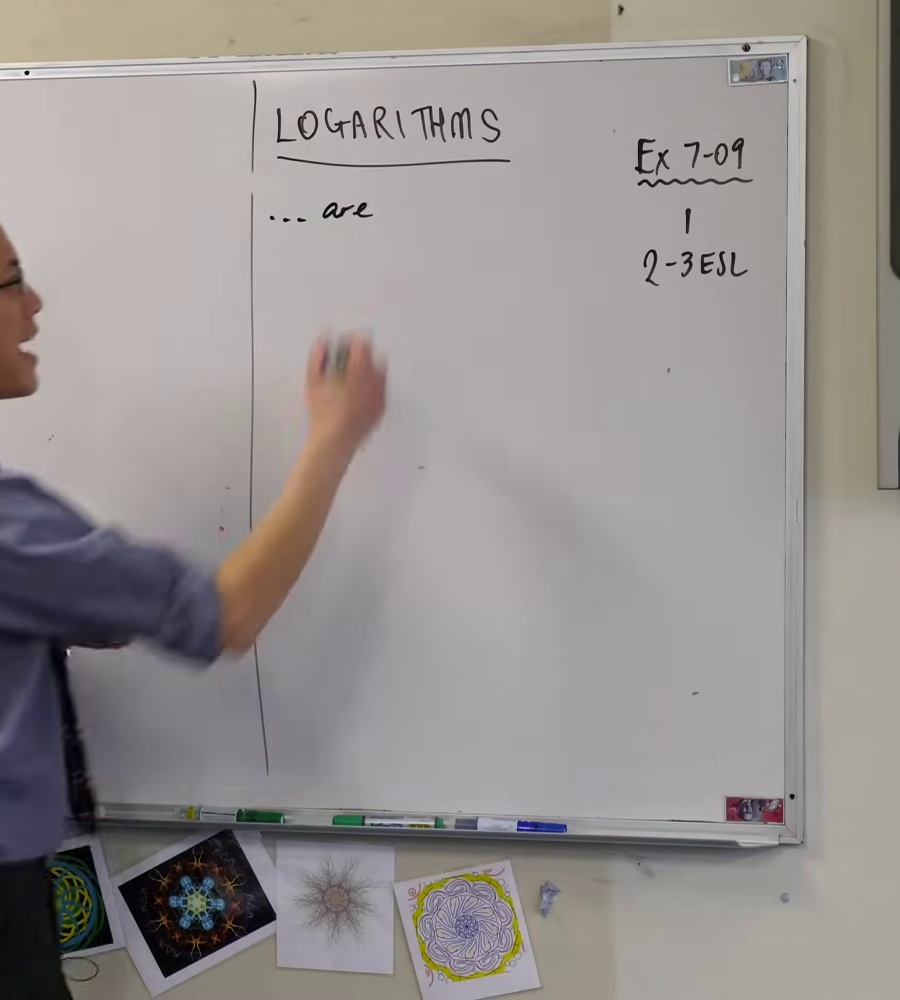 LOGARITHMS
... are
Ex 7-09
1
2-3 ESL